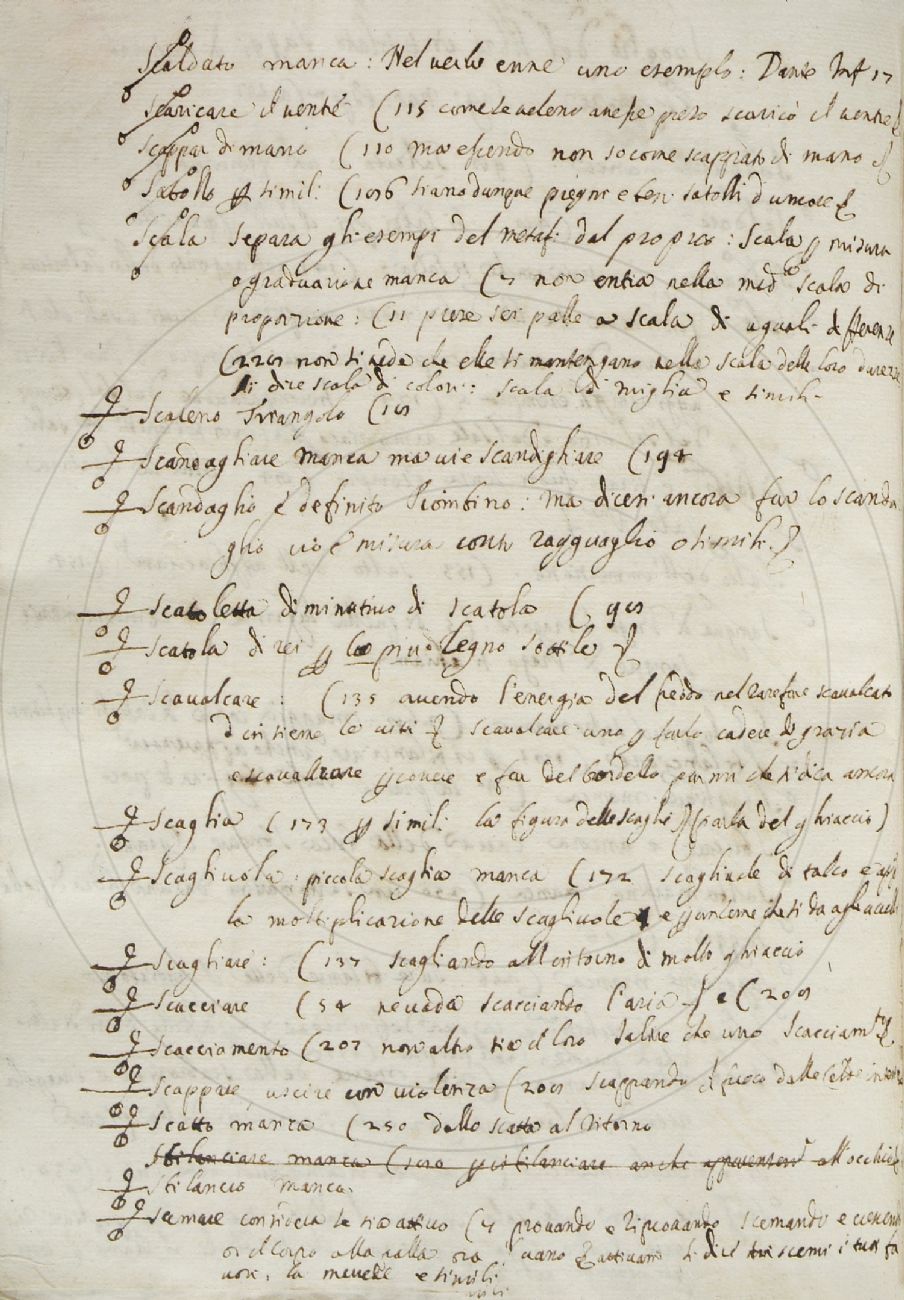 Scaldato manca: Nel verbo enne uno esemplo: Dante Inf 17
Scaricare il ventre (115 come se veleno avesse preso scaricò il ventre
Scappar di mano (110 ma essendo non so come scappato di mano
Satollo simil: (1056 siano dunque pregni e ben satolli d'umore
Scala separa gli esempi del metaf: dal proprio: Scala misura
o graduazione manca (7 non entra nella med.a scala di
proporzione: (11 prese sei palle a scala di uguali differenze
(229 non si vede che elle si mantengano nella scala delle loro durezze
si dice scala di colori: scala di miglia e simili
Scaleno Triangolo (19
Scandagliare manca ma vi è scandigliare (194
Scandaglio è definito Piombino: ma dicesi ancora far lo scanda
glio cioè misura conto ragguaglio o simili.
Scatoletta diminutivo di scatola (99
Scatola di rei lo più di legno sottile
Scavalcare: (135 avendo l'energia del freddo nel rarefare scavalcato
scavalcare uno farlo cadere di grazia
e scavallare correre e far del bordello parmi che si dica ancora
Scaglia (173 simil: la figura delle scaglie (parla del ghiaccio)
Scagliuola: piccola scaglia manca (172 scagliuole di talco e
la moltiplicazione delle scagliuole e seme che si da agli uccelli
Scagliare: (137 scagliando all'intorno di molto ghiaccio
Scacciare (54 scacciando l'aria e (209
Scacciamento (207 non altro sia il loro salire che uno scacciam.to
Scappare, uscire con violenza (209 scappando il fuoco dalle
Scatto manca (250 dallo scatto al ritorno
Sbilanciare manca (sbilanciare anche all'occhio
Sbilancio manca
Scemare considera se sia attivo (7 provando e riprovando scemando e crescendo
or il corpo alla palla ora vano si dice scemi i tuoi fa
vori, la mercede e simili